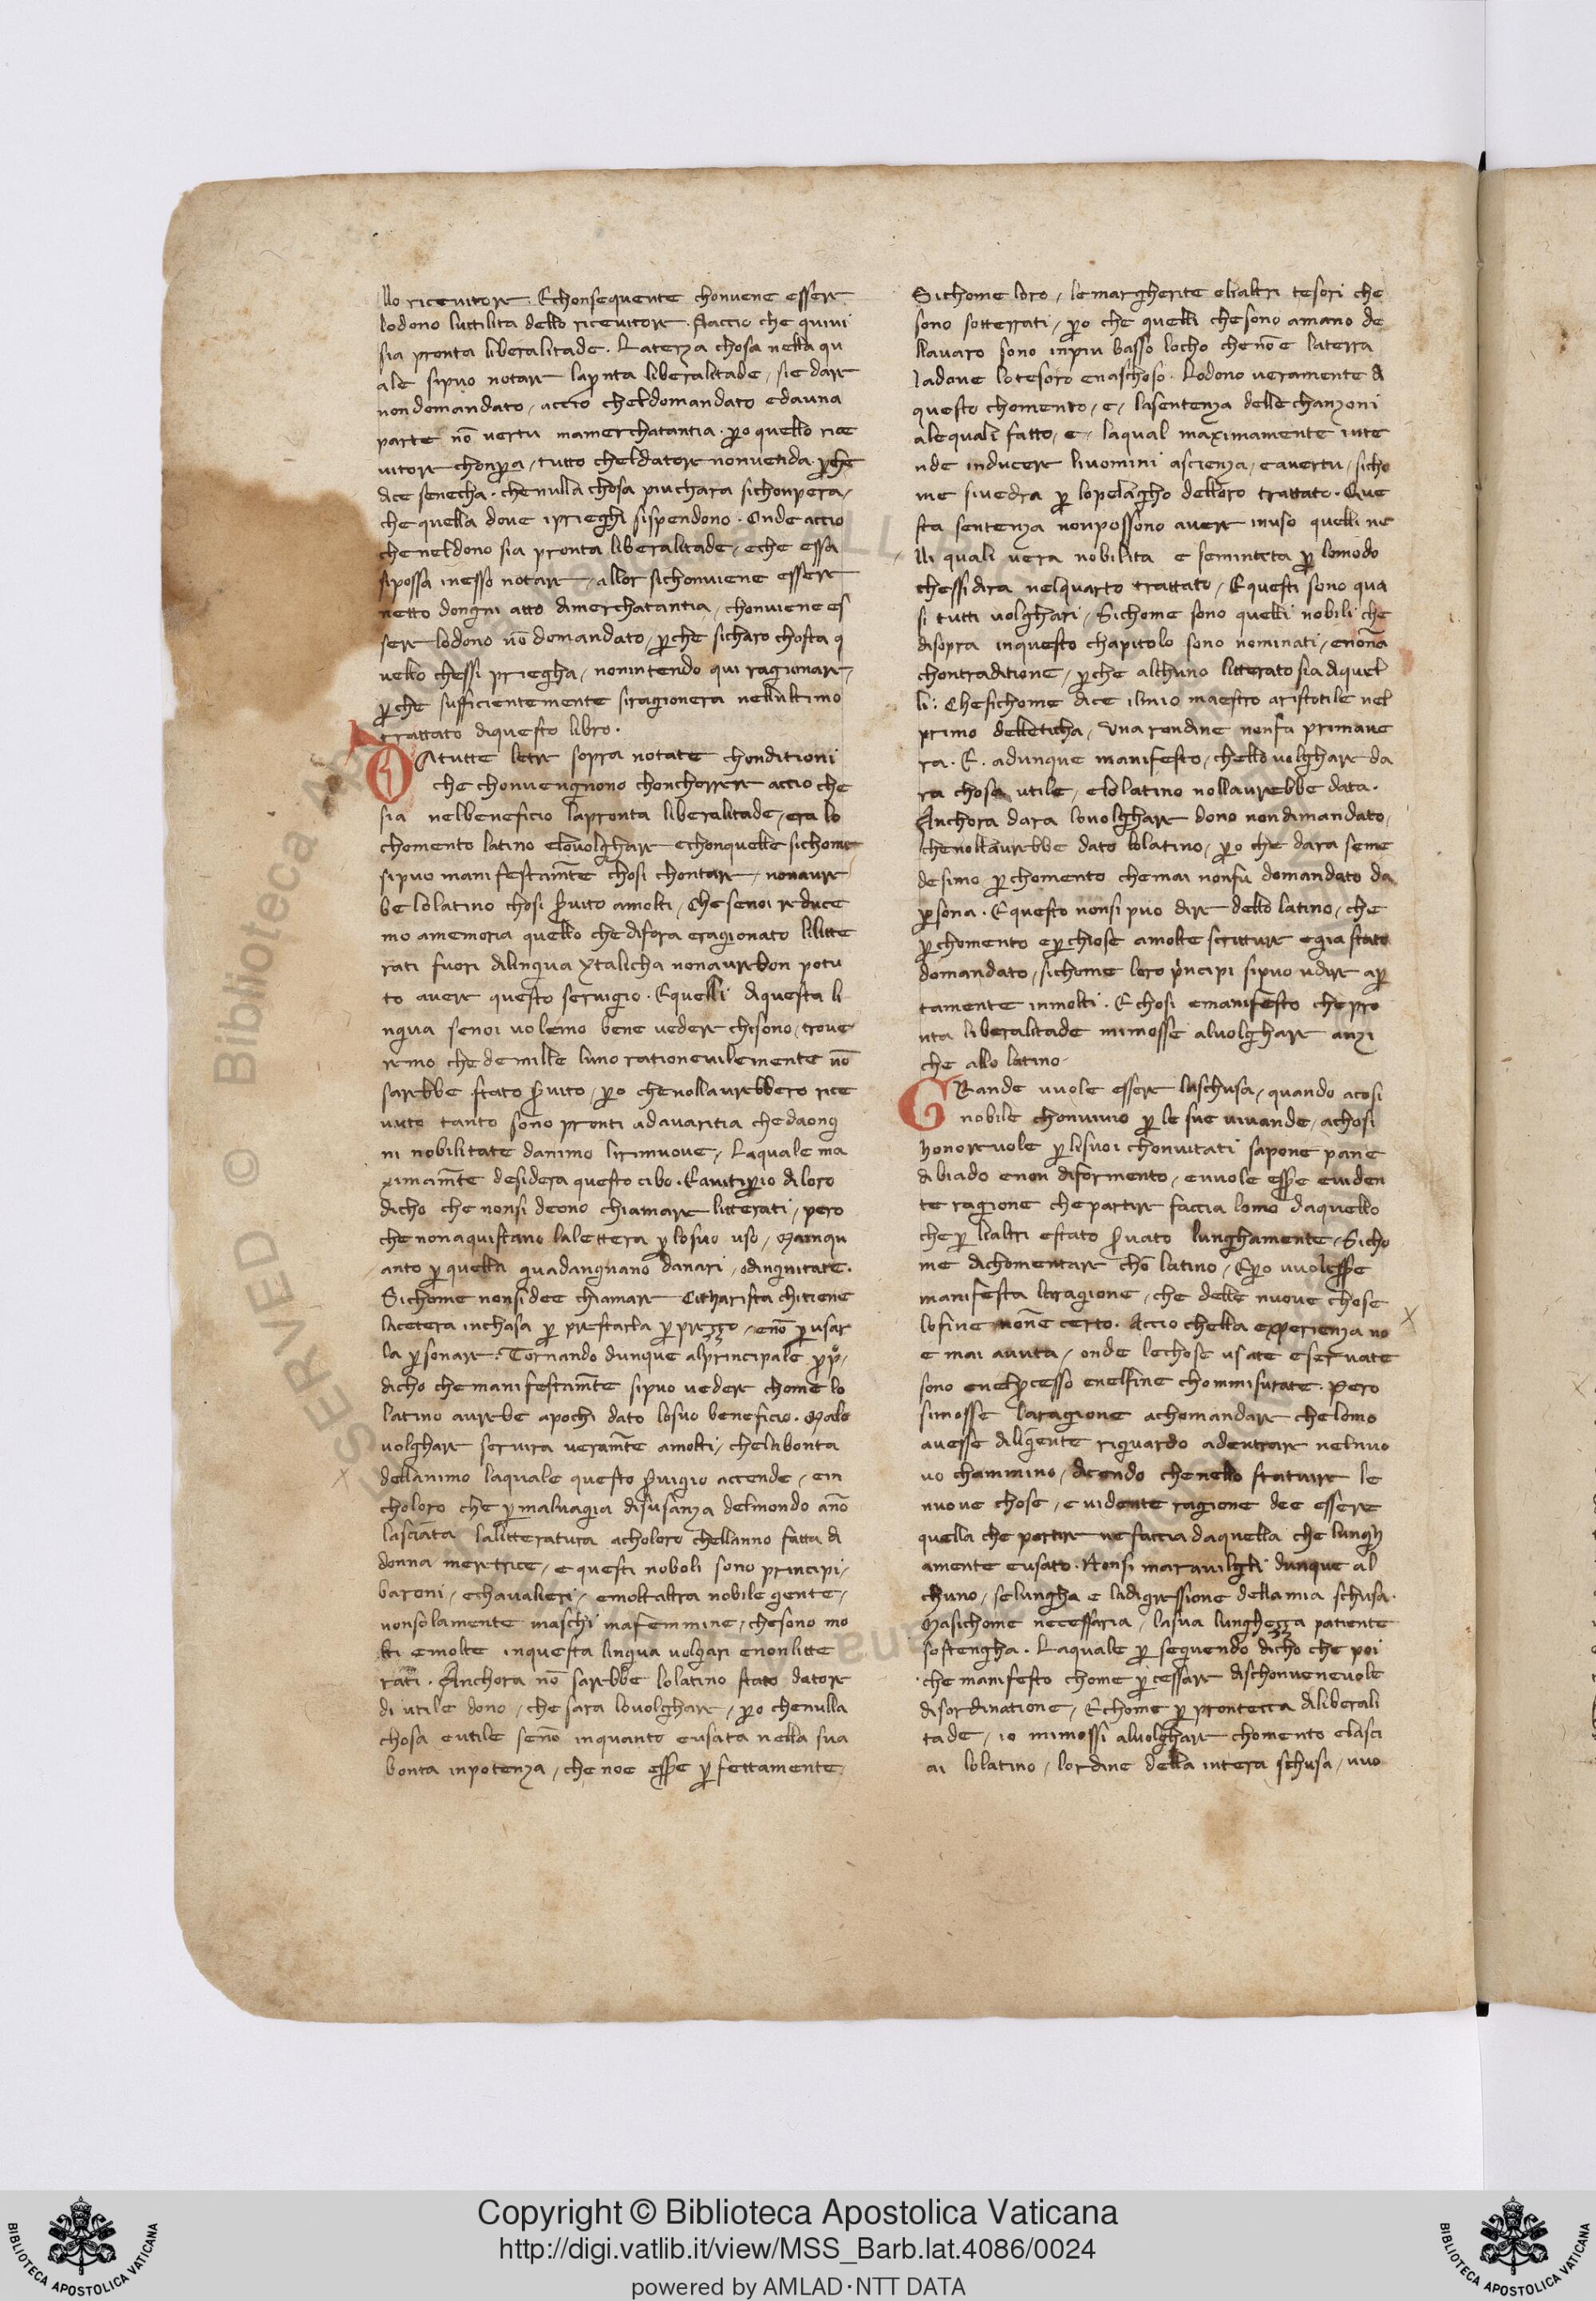 llo riceuitore. Echonsequente chonuene essere
lodono luttilita dello riceuitore. Aaccio che quiui
sia pronta liberalitade. Laterza chosa nella qu
ale sipuo notare lap̄nta liberalitade, sie dare
non domandato, accio cheldomandato edauna
parte nō vertu mamerchatantia. ꝑo quello rice
uitore chonꝑa, tutto cheldatore nonuenda ꝑche
dice senecha. chenulla chosa piuchara sichonpera,
che quella doue iprieghi sispendono. Onde accio
che neldono sia pronta liberalitade, eche essa
sipossa inesso notare, allor sichonuiene essere
netto dongni atto dimerchatantia, chonuiene es
ser lodono nō domandato, ꝑche sicharo chosta q
uello chessi priegha, nonintendo qui ragionare,
ꝑche sufficientemente siragionera nellultimo
trattato diquesto libro.
Atutte letre sopra notate chonditioni
che chonuengnono choncherrere accio che
sia nelbeneficio lapronta liberalitade, era lo
chomento latino elouolghare echonquelle sichome
sipuo manifestam̄te chosi chontare, nonaure
be lolatino chosi ꝓuito amolti, che senoi reduce
mo amemoria quello che disora eragionato lilitte
rati fuori dilinqua ytalicha nonaurebbon potu
to auere questo seruigio. Equelli diquesta li
nqua senoi uolemo bene uedere chisono, troue
remo che de mille luno rationeuilemente nō
sarebbe stato ꝓuito, ꝑo chenollaurebbero rice
uuto tanto sono pronti adauaritia chedaong
ni nobilitate danimo lirimuoue, Laquale ma
ximam̄te desidera questo cibo. Eauitiꝑio diloro
dicho che nonsi deono chiamare litterati, pero
che nonaquistano lalettera ꝑ losuo uso, Mainqu
anto ꝑ quella guadangnano danari, odingnitate.
Sichome nonsi dee chiamare Citharista chitiene
lacetera inchasa ꝑ prestarla ꝑ prezzo, enō ꝑ usar
la ꝑ sonare. Tornando dunque alprincipale ꝓp°,
dicho che manifestam̄te sipuo uedere chome lo
latino aurebe apochi dato losuo beneficio. Malo
uolghare seruira ueram̄te amolti, chelabonta
dellanimo laquale questo ꝓuigio attende, ein
choloro che ꝑ maluagia disusanza delmondo ano
lasciata lalitteratura acholoro chellanno fatta di
donna meretrice, e questi noboli sono principi,
baroni, echaualieri, emoltaltra nobile gente,
nonsolamente maschi mafemmine, chesono mo
lti emolte inquesta lingua uolgari enonlitte
rati. Anchora nō sarebbe lolatino stato datore
di utile dono, che sara louolghare, ꝑo chenulla
chosa eutile senō inquanto eusata nella sua
bonta inpotenza, che noe esse ꝑfettamente,
Sichome loro, lemargherite elialtri tesori che
sono sotterrati, ꝑo che quelli chesono amano de
llauaro sono inpiu basso locho chenō e laterra
ladoue lotesoro enaschoso. Lodono ueramente di
questo chomento, e, lasentenza delle chanzoni
alequali fatto, e, laqual maximamente inte
nde inducere liuomini ascienza, eauertu, sicho
me siuedra ꝑ lopelagho delloro trattato. Que
sta sentenza nonpossono auere inuso quelli ne
lli quali uera nobilita e seminata ꝑ lomodo
chessi dira nelquarto trattato, Equesti sono qua
si tutti uolghari, Sichome sono quelli nobili che
disopra inquesto chapitolo sono nominati, enona
chontraditione, ꝑche alchuno litterato sia diquel
li: Chesichome dice ilmio maestro aristotile nel
primo delleticha, Vna rondine nonfa primaue
ra. E. adunque manifesto, chello uolghare da
ra chosa utile, elo latino nollaurebbe data.
Anchora dara louolghare dono non dimandato,
chenollaurebbe dato lolatino, ꝑo che dara seme
desimo ꝑ chomento chemai nonfu domandato da
ꝑsona. Equesto nonsi puo dire dello latino, che
ꝑ chomento eꝑ chiose amolte scritture egia stato
domandato, sichome loro p̄ncipi sipuo udire aꝑ
tamente inmolti. Echosi emanifesto che pro
nta liberalitade mimosse aluolghare anzi
che allo latino.
GRande uuole essere laschusa, quando acosi
nobile chonuiuio ꝑ le sue uiuande, achosi
honoreuole ꝑ lisuoi chonuitati sapone pane
dibiado enon diformento, euuole esse euiden
te ragione che partire faccia lomo daquello
che ꝑ lialtri estato ꝓuato lunghamente, Sicho
me dichomentare chō latino, Eꝑo uuolesse
manifesta laragione, che delle nuoue chose
lofine none certo. Accio chella experienza no
e mai auuta, onde lechose usate eseruate
sono enelꝓcesso enelfine chommisurate. Pero
simosse laragione achomandare che lomo
auesse diligente riguardo adentrare nelnuo
uo chammino, dicendo chenello statuire le
nuoue chose, euidente ragione dee essere
quella che partire ne faccia daquella che lungh
amente eusato. Nonsi marauigli dunque al
chuno, selungha e ladigressione dellamia schusa.
Masichome necessaria, lasua lunghezza patiente
sostengha. Laquale ꝑ seguendo dicho che poi
che manifesto chome ꝑ cessare dischonueneuole
disordinatione, Echome ꝑ prontecca diliberali
tade, io mimossi aluolghare chomento elasci
ai lolatino, lordine della intera schusa, uuo
Copyright © Biblioteca Apostolica Vaticana
http://digi.vatlib.it/view/MSS_Barb.lat.4086/0024
powered by AMLAD·NTT DATA
BIBLIOTECA APOSTOLICA VATICANA
BIBLIOTECA APOSTOLICA VATICANA